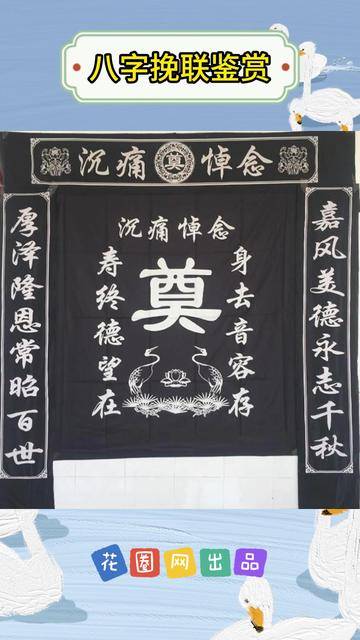 八字挽联鉴赏
沉痛奠悼念
厚泽隆恩常昭百世
沉痛悼念
寿终德望在
奠
身去音容存
嘉风美德永志千秋
花圈网出品